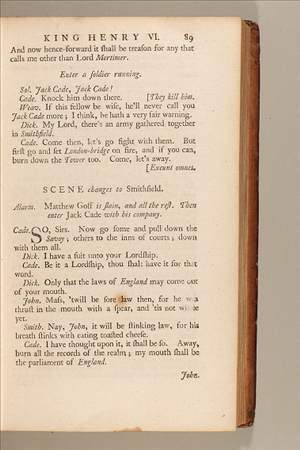 KING HENRY VI. 89
And now hence-forward it ſhall be treaſon for any that
calls me other than Lord Mortimer.
Enter a ſoldier running.
Sol. Jack Cade, Jack Cade!
Cade. Knock him down there. [They kill him.
Weav. If this fellow be wiſe, he'll never call you
Jack Cade more; I think, he hath a very fair warning.
Dick. My Lord, there's an army gathered together
in Smithfield.
Cade. Come then, let's go fight with them. But
firſt go and ſet London-bridge on fire, and if you can,
burn down the Tower too. Come, let's away.
[Exeunt omnes.
SCENE changes to Smithfield.
Alarm. Matthew Goff is ſlain, and all the reſt. Then
enter Jack Cade with his company.
Cade. SO, Sirs. Now go ſome and pull down the
Savoy; others to the inns of courts; down
with them all.
Dick. I have a ſuit unto your Lordſhip.
Cade. Be it a Lordſhip, thou ſhalt have it for that
word.
Dick. Only that the laws of England may come out
of your mouth.
John. Maſs, 'twill be ſore law then, for he was
thruſt in the mouth with a ſpear, and 'tis not whole
yet.
Smith. Nay, John, it will be ſtinking law, for his
breath ſtinks with eating toaſted cheeſe.
Cade. I have thought upon it, it ſhall be ſo. Away,
burn all the records of the realm; my mouth ſhall be
the parliament of England.
John.